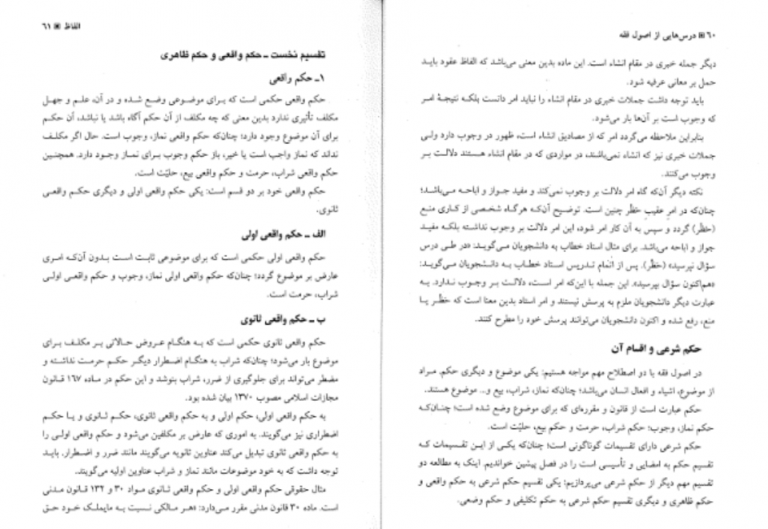 ۶۰ ▣ درس‌هایی از اصول فقه
دیگر جمله خبری در مقام انشاء است. این ماده بدین معنی می‌باشد که الفاظ عقود باید
حمل بر معانی عرفیه شود.
باید توجه داشت جملات خبری در مقام انشاء را نباید امر دانست بلکه نتیجهٔ امر
که وجوب است بر آن‌ها بار می‌شود.
بنابراین ملاحظه می‌گردد امر که از مصادیق انشاء است، ظهور در وجوب دارد ولی
جملات خبری نیز که انشاء نمی‌باشند، در مواردی که در مقام انشاء هستند دلالت بر
وجوب می‌کنند.
نکته دیگر آن‌که گاه امر دلالت بر وجوب نمی‌کند و مفید جواز و اباحه می‌باشد؛
چنان‌که در امرِ عقیبِ حَظْر چنین است. توضیح آن‌که هرگاه شخصی از کاری منع
(حَظْر) گردد و سپس به آن کار امر شود، این امر دلالت بر وجوب نداشته بلکه مفید
جواز و اباحه می‌باشد. برای مثال استاد خطاب به دانشجویان می‌گوید: «در طی درس
سؤال نپرسید» (حَظْر). پس از اتمام تدریس استاد خطاب به دانشجویان می‌گوید:
«هم‌اکنون سؤال بپرسید». این جمله با این‌که امر است، دلالت بر وجوب ندارد. به
عبارت دیگر دانشجویان ملزم به پرسش نیستند و امر استاد بدین معنا است که حَظْر یا
منع، رفع شده و اکنون دانشجویان می‌توانند پرسش خود را مطرح کنند.
حکم شرعی و اقسام آن
در اصول فقه با دو اصطلاح مهم مواجه هستیم: یکی موضوع و دیگری حکم. مراد
از موضوع، اشیاء و افعال انسان می‌باشد؛ چنان‌که نماز، شراب، بیع و... موضوع هستند.
حکم عبارت است از قانون و مقرره‌ای که برای موضوع وضع شده است؛ چنان‌که
حکم نماز، وجوب؛ حکم شراب، حرمت و حکم بیع، حلیّت است.
حکم شرعی دارای تقسیمات گوناگونی است؛ چنان‌که یکی از این تقسیمات که
تقسیم حکم به امضایی و تأسیسی است را در فصل پیشین خواندیم. اینک به مطالعه دو
تقسیم مهم دیگر از حکم شرعی می‌پردازیم: یکی تقسیم حکم شرعی به حکم واقعی و
حکم ظاهری و دیگری تقسیم حکم شرعی به حکم تکلیفی و حکم وضعی.
الفاظ ▣ ۶۱
تقسیم نخست ـ حکم واقعی و حکم ظاهری
۱ـ حکم واقعی
حکم واقعی حکمی است که برای موضوعی وضع شده و در آن، علم و جهل
مکلف تأثیری ندارد بدین معنی که چه مکلف از آن حکم آگاه باشد یا نباشد، آن حکم
برای آن موضوع وجود دارد؛ چنان‌که حکم واقعی نماز، وجوب است. حال اگر مکلف
نداند که نماز واجب است یا خیر، باز حکم وجوب برای نماز وجود دارد. همچنین
حکم واقعی شراب، حرمت و حکم واقعی بیع، حلیّت است.
حکم واقعی خود بر دو قسم است: یکی حکم واقعی اولی و دیگری حکم واقعی
ثانوی.
الف ـ حکم واقعی اولی
حکم واقعی اولی حکمی است که برای موضوعی ثابت است بدون آن‌که امری
عارض بر موضوع گردد؛ چنان‌که حکم واقعی اولی نماز، وجوب و حکم واقعی اولی
شراب، حرمت است.
ب ـ حکم واقعی ثانوی
حکم واقعی ثانوی حکمی است که به هنگام عروض حالاتی بر مکلف برای
موضوع بار می‌شود؛ چنان‌که شراب به هنگام اضطرار دیگر حکم حرمت نداشته و
مضطر می‌تواند برای جلوگیری از ضرر، شراب بنوشد و این حکم در ماده ۱۶۷ قانون
مجازات اسلامی مصوب ۱۳۷۰ بیان شده بود.
به حکم واقعی اولی، حکم اولی و به حکم واقعی ثانوی، حکم ثانوی و یا حکم
اضطراری نیز می‌گویند. به اموری که عارض بر مکلفین می‌شود و حکم واقعی اولی را
به حکم واقعی ثانوی تبدیل می‌کند عناوین ثانویه می‌گویند مانند ضرر و اضطرار. باید
توجه داشت که به خود موضوعات مانند نماز و شراب عناوین اولیه می‌گویند.
مثال حقوقی حکم واقعی اولی و حکم واقعی ثانوی مواد ۳۰ و ۱۳۲ قانون مدنی
است. ماده ۳۰ قانون مدنی مقرر می‌دارد: «هر مالکی نسبت به مایملک خود حق